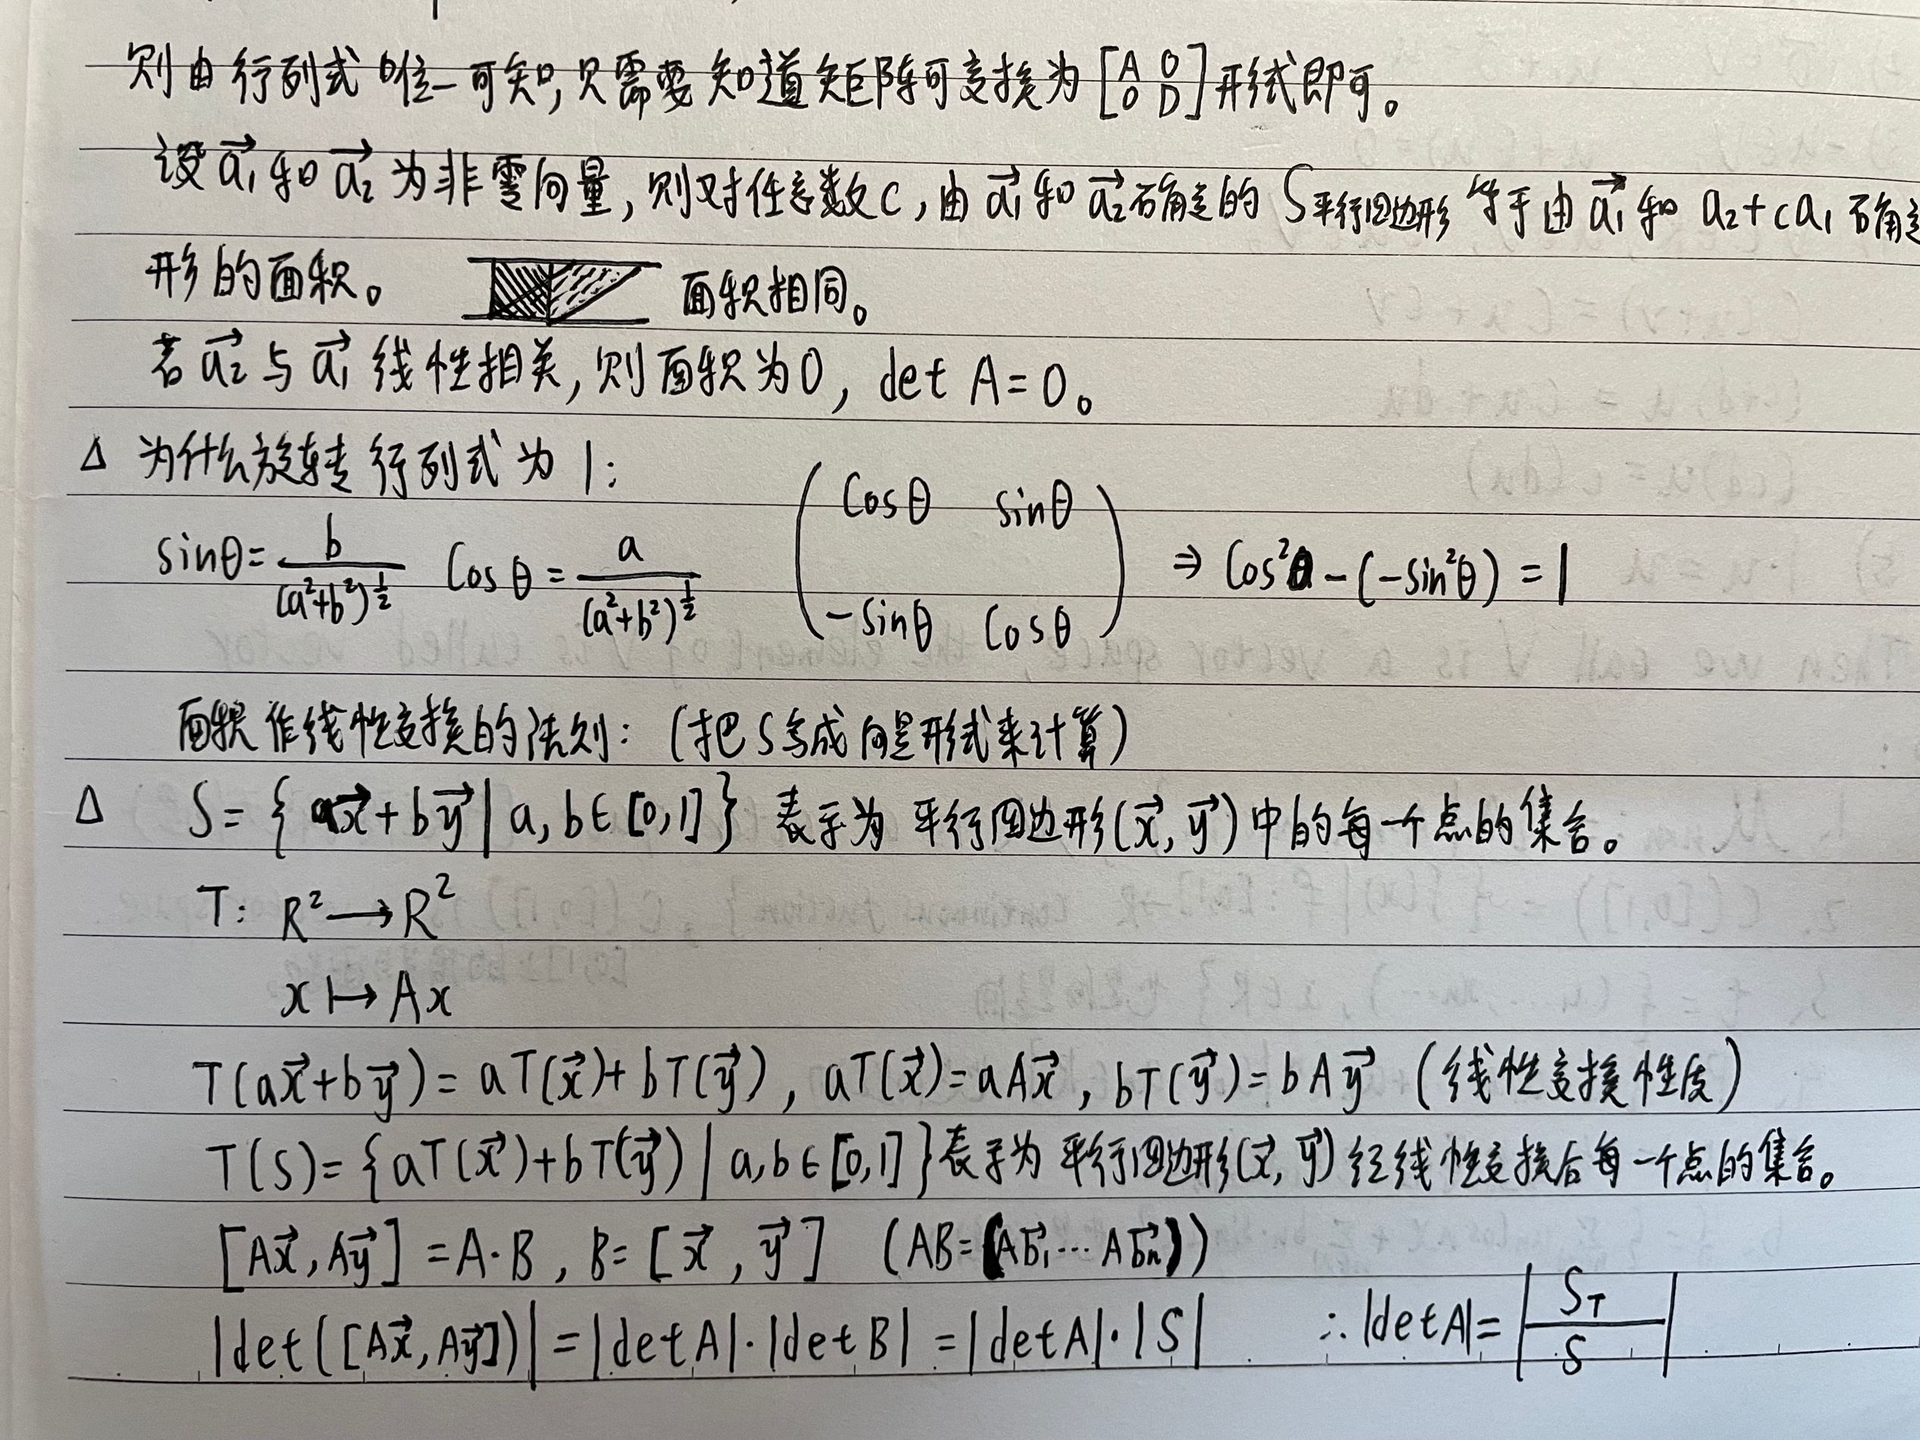 则由行列式唯一可知,只需要知道矩阵可变换为[A 0 0 D]形式即可。
设a₁→和a₂→为非零向量,则对任意数c,由a₁→和a₂→确定的S平行四边形等于由a₁→和a₂+ca₁确定
形的面积。 面积相同。
若a₂→与a₁→线性相关,则面积为0, det A=0。
Δ 为什么旋转行列式为1:
sinθ=b/(a²+b²)^½ cosθ=a/(a²+b²)^½ (cosθ sinθ -sinθ cosθ) ⇒ cos²θ-(-sin²θ)=1
面积作线性变换的法则:(把S写成向量形式来计算)
Δ S={ax→+by→|a,b∈[0,1]}表示为平行四边形(x→,y→)中的每一个点的集合。
T: R²⟶R²
x↦Ax
T(ax→+by→)=aT(x→)+bT(y→), aT(x→)=aAx→, bT(y→)=bAy→ (线性变换性质)
T(S)={aT(x→)+bT(y→)|a,b∈[0,1]}表示为平行四边形(x→,y→)经线性变换后每一个点的集合。
[Ax→,Ay→]=A·B, B=[x→,y→] (AB=(Ab₁→…Abₙ→))
|det([Ax→,Ay→])|=|detA|·|detB|=|detA|·|S| ∴|detA|=|S_T/S|